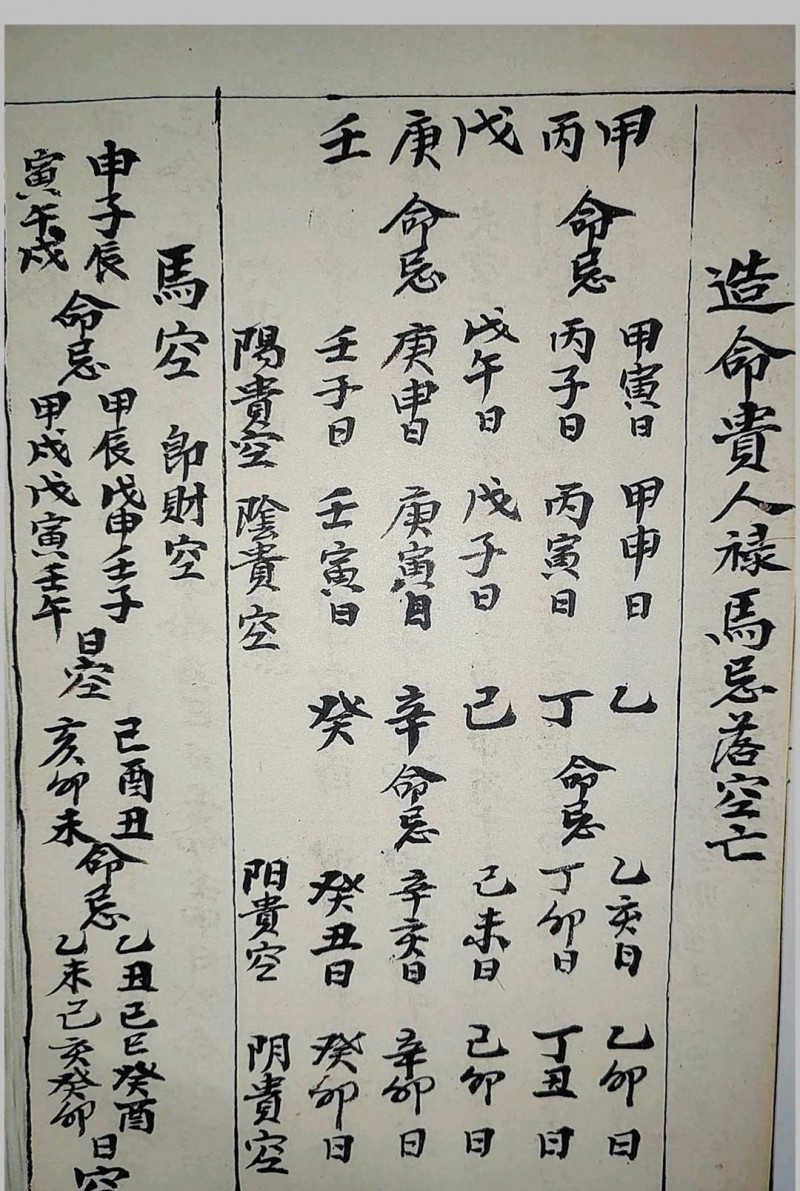 造命貴人禄馬忌落空亡
甲 命忌 甲寅日 甲申日 乙 命忌 乙亥日 乙卯日
丙 丙子日 丙寅日 丁 丁卯日 丁丑日
戊 戊午日 戊子日 己 己未日 己卯日
庚 命忌 庚申日 庚寅日 辛 命忌 辛亥日 辛卯日
壬 壬子日 壬寅日 癸 癸丑日 癸卯日
陽貴空 陰貴空 阳貴空 阴貴空
馬空 即財空
申子辰 命忌 甲辰戊申壬子 日空 巳酉丑 命忌 乙丑己巳癸酉 日空
寅午戌 甲戌戊寅壬午 亥卯未 乙未己亥癸卯